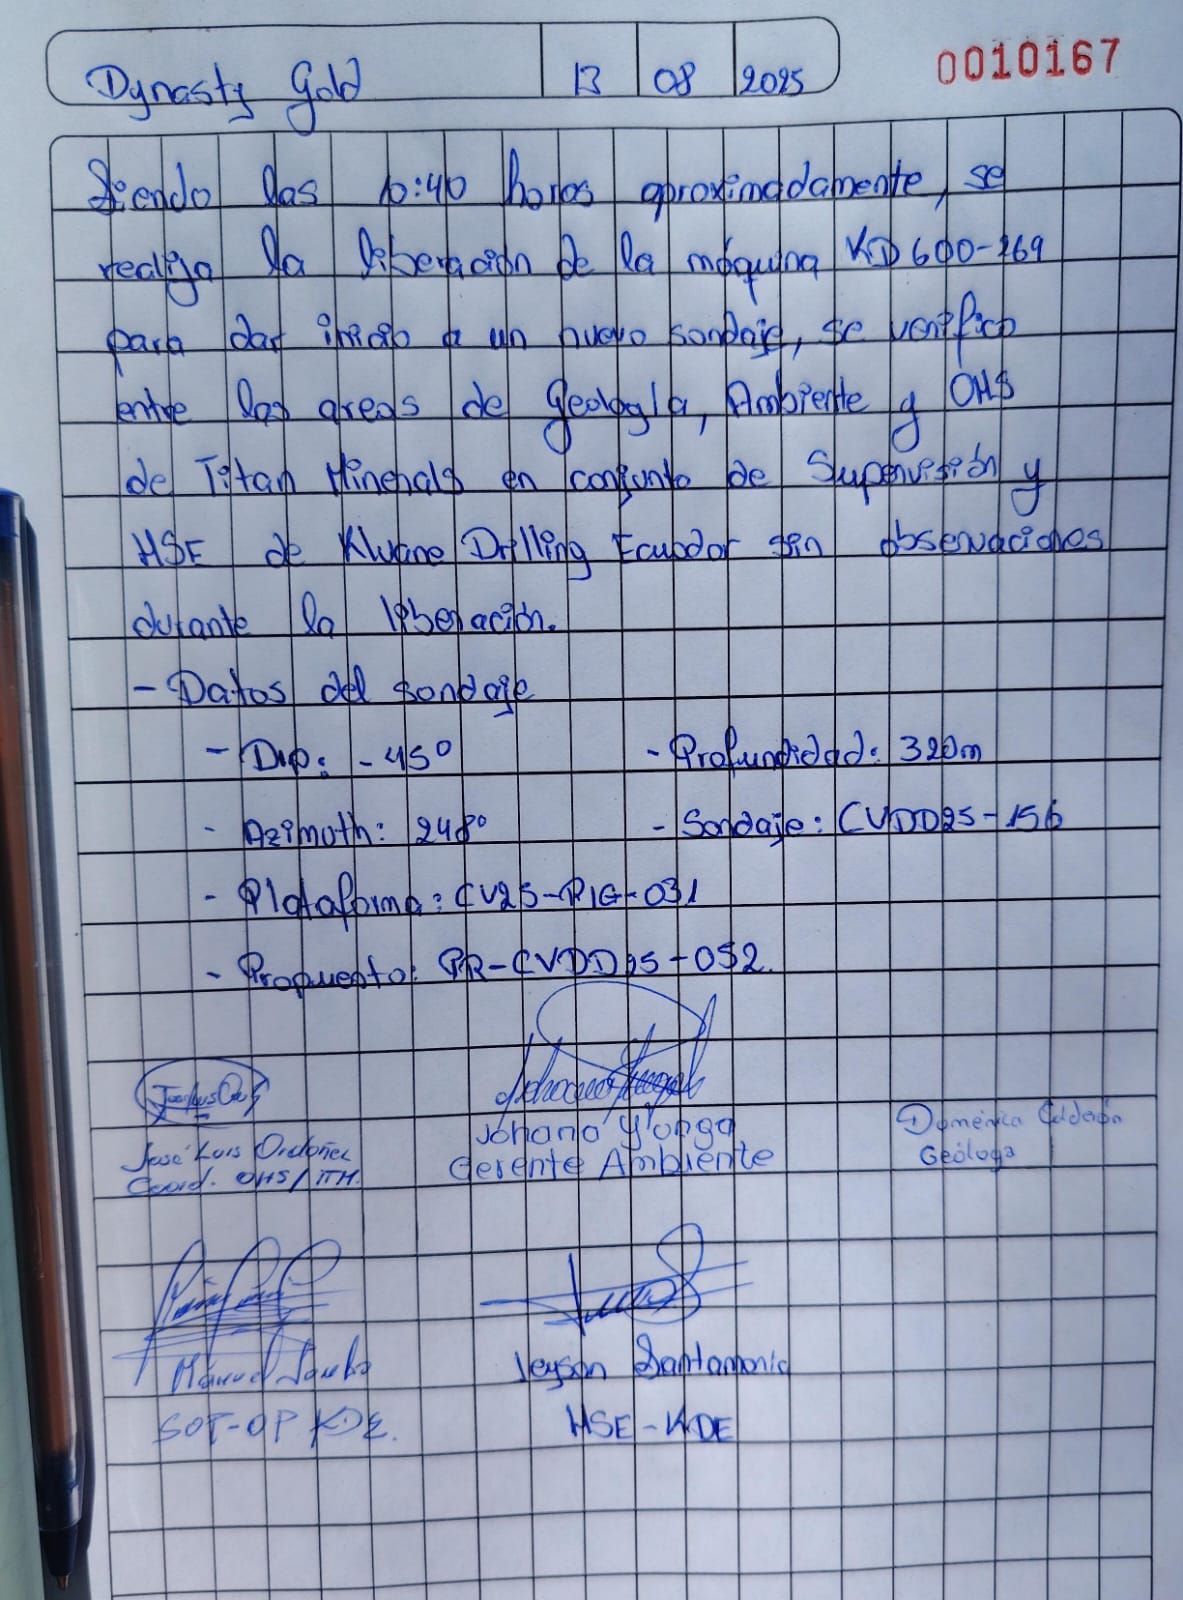 Dynasty Gold 13 08 2025 0010167
Siendo las 10:40 horas aproximadamente, se
realiza la liberación de la máquina KD600-269
para dar inicio a un nuevo sondaje, se verifico
entre las areas de Geología, Ambiente y OHS
de Titan Minerals en conjunto de Supervisión y
HSE de Kluane Drilling Ecuador sin observaciones
durante la liberación.
- Datos del sondaje
- Dip: -45° - Profundidad: 320m
- Azimuth: 248° - Sondaje: CVDD25-156
- Plataforma: CV25-RIG-031
- Propuesto: PR-CVDD25-052.
José Luis Ordoñez Johana Yonga Doménica Calderón
Coord. OHS/TTM. Gerente Ambiente Geóloga
Manuel Jeyson Santamaria
KDE. HSE-KDE